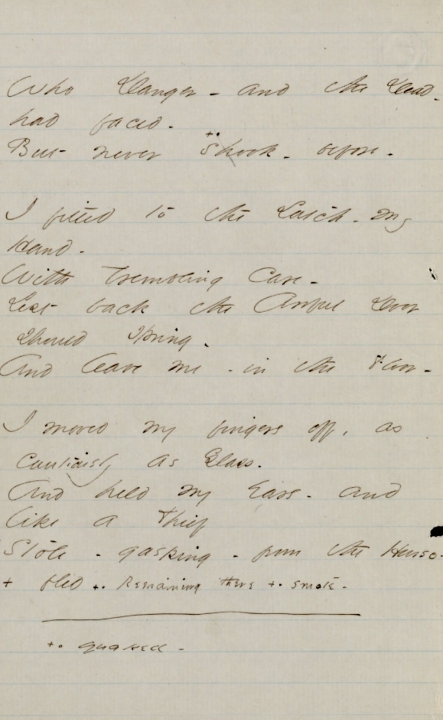 Who Danger - and the Dead -
had faced -
But never Shook - before -
I fitted to the Latch - my
Hand -
With trembling Care -
Lest back the Awful Door
Should Spring -
And leave me - in the Floor -
I moved my fingers off, as
cautiously as Glass -
And held my Ears - and
like a Thief
Stole - gasping - from the House -
+ fled +. Remaining there +. smote -
+. quaked -